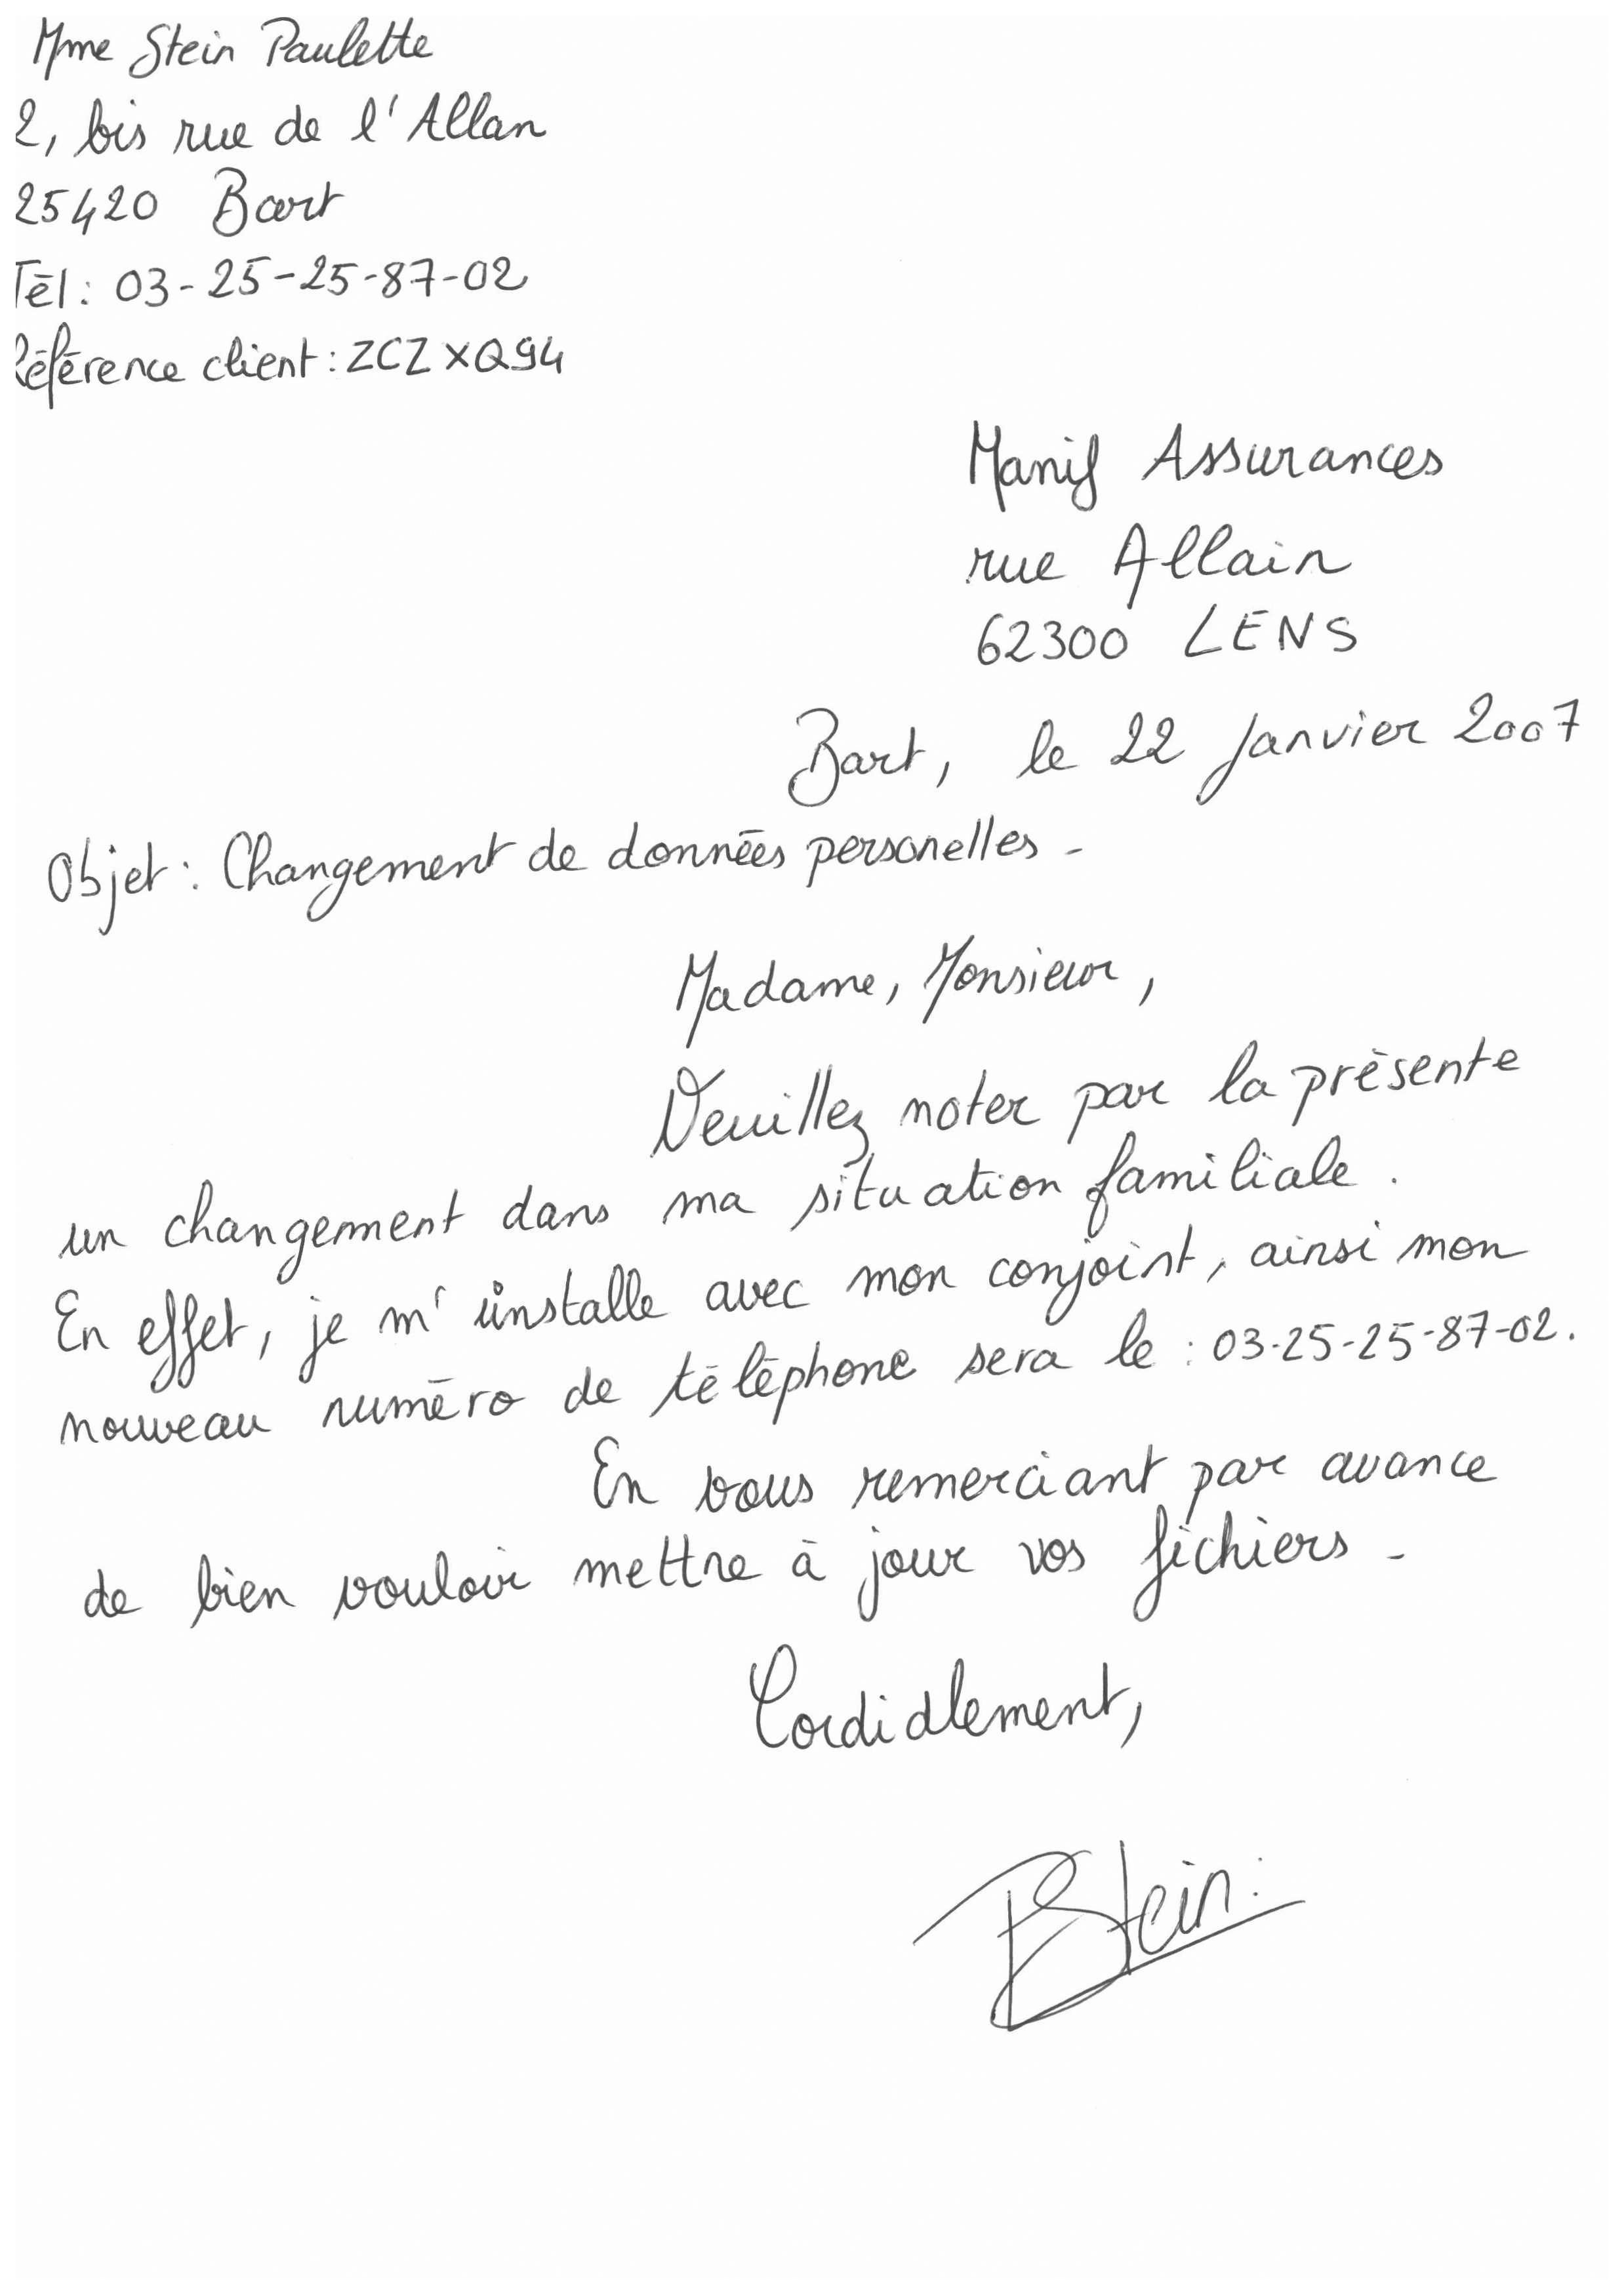 Mme Stein Paulette
2, bis rue de l'Allan
25420 Bart
Tél : 03-25-25-87-02
Référence client : ZCZXQ94
Manif Assurances
rue Allain
62300 LENS
Bart, le 22 Janvier 2007
Objet : Changement de données personelles -
Madame, Monsieur,
Veuillez noter par la présente
un changement dans ma situation familiale.
En effet, je m'installe avec mon conjoint, ainsi mon
nouveau numéro de téléphone sera le : 03-25-25-87-02.
En vous remerciant par avance
de bien vouloir mettre à jour vos fichiers -
Cordialement,
PStein